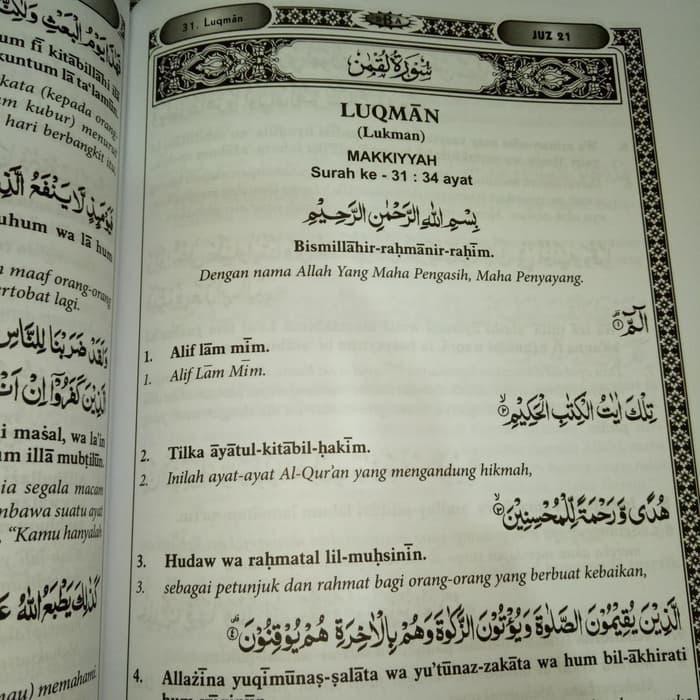 31. Luqmān
JUZ 21
سُورَةُ لُقْمٰن
LUQMĀN
(Lukman)
MAKKIYYAH
Surah ke - 31 : 34 ayat
بِسْمِ اللّٰهِ الرَّحْمٰنِ الرَّحِيْمِ
Bismillāhir-raḥmānir-raḥīm.
Dengan nama Allah Yang Maha Pengasih, Maha Penyayang.
الٓمّٓ ۚ ١
1. Alif lām mīm.
1. Alif Lām Mīm.
تِلْكَ اٰيٰتُ الْكِتٰبِ الْحَكِيْمِۙ ٢
2. Tilka āyātul-kitābil-ḥakīm.
2. Inilah ayat-ayat Al-Qur'an yang mengandung hikmah,
هُدًى وَّرَحْمَةً لِّلْمُحْسِنِيْنَۙ ٣
3. Hudaw wa raḥmatal lil-muḥsinīn.
3. sebagai petunjuk dan rahmat bagi orang-orang yang berbuat kebaikan,
الَّذِيْنَ يُقِيْمُوْنَ الصَّلٰوةَ وَيُؤْتُوْنَ الزَّكٰوةَ وَهُمْ بِالْاٰخِرَةِ هُمْ يُوْقِنُوْنَۗ ٤
4. Allażīna yuqīmūnaṣ-ṣalāta wa yu'tūnaz-zakāta wa hum bil-ākhirati
يَوْمُ الْبَعْثِ وَلٰكِ
um fī kitābillāhi ilā
kuntum lā ta'lamūn.
kata (kepada orang-
m kubur) menurut
hari berbangkit itu,
فَيَوْمَىِٕذٍ لَّا يَنْفَعُ الَّذِ
uhum wa lā hum
n maaf orang-orang
ertobat lagi.
وَلَقَدْ ضَرَبْنَا لِلنَّاسِ
الَّذِيْنَ كَفَرُوْٓا اِنْ اَنْ
i maṡal, wa la'in
um illā mubṭilūn.
ia segala macam
mbawa suatu ayat
, “Kamu hanyalah
كَذٰلِكَ يَطْبَعُ اللّٰهُ عَ
au) memahami.